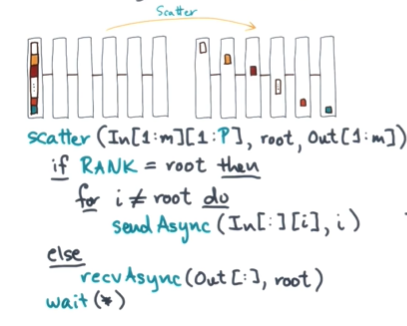 Scatter
scatter (In[1:m][1:P], root, Out[1:m])
if RANK = root then
for i ≠ root do
sendAsync (In[:][i], i)
else
recvAsync (Out[:], root)
wait (*)